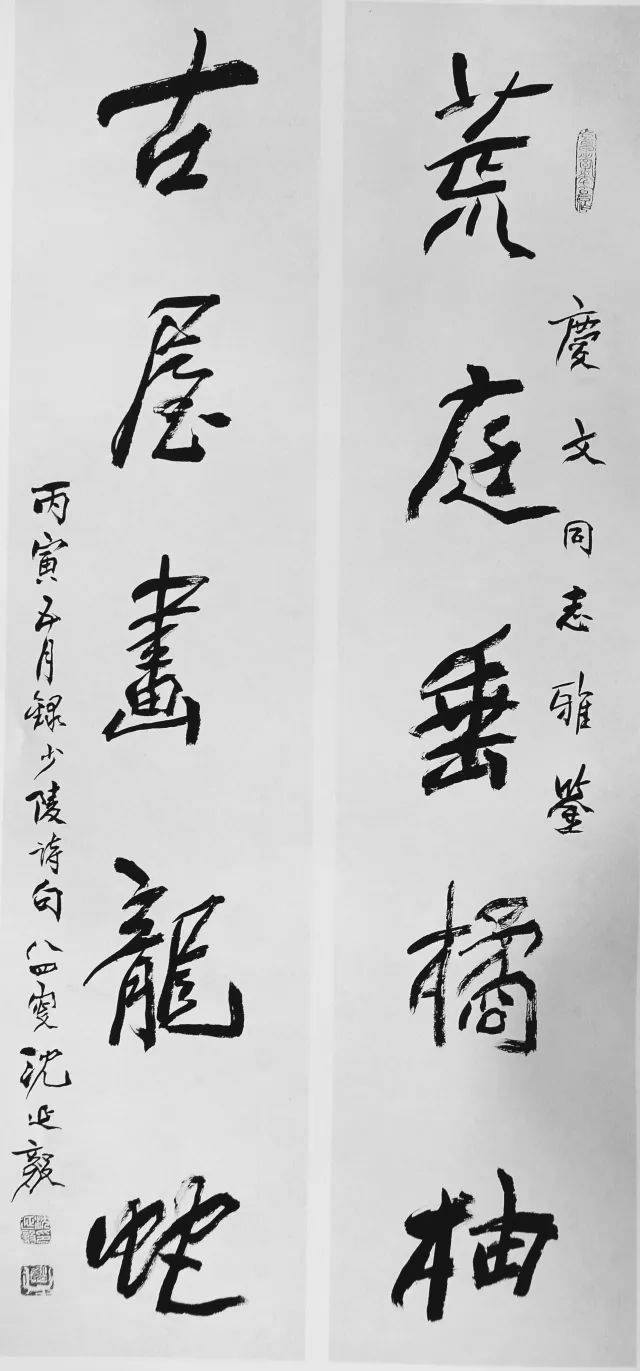 慶文同志雅鑒
荒庭垂橘柚
古屋畫龍蛇
丙寅五月錄少陵詩句八四叟沈延毅